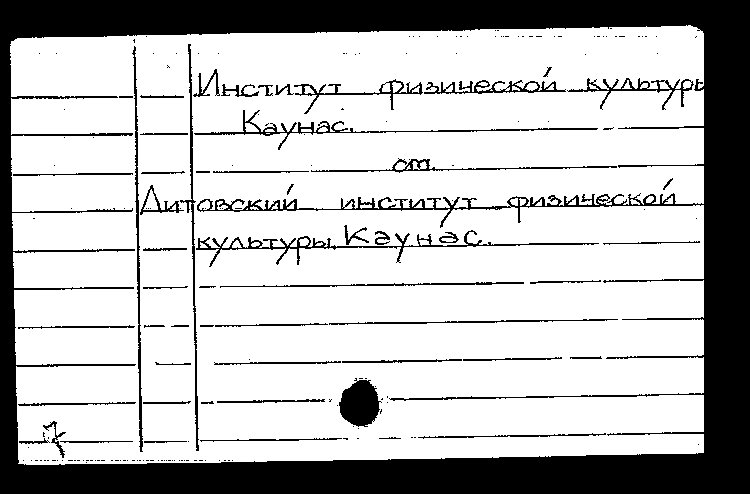 Институт физической культуры
Каунас.
см.
Литовский институт физической
культуры, Каунас.